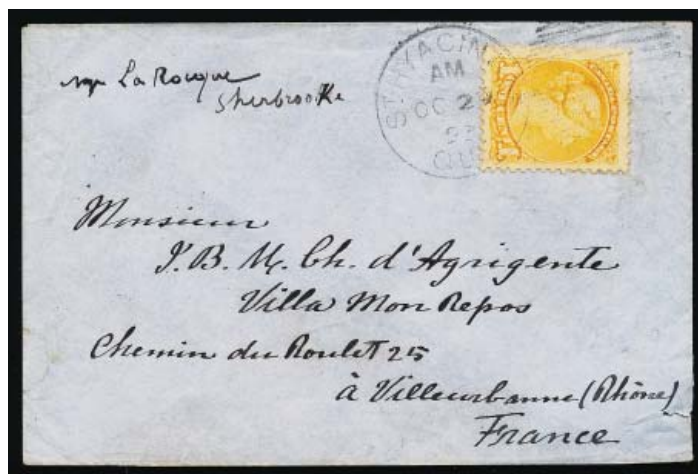 Mgr LaRocque
Sherbrooke
ST. HYACIN
AM
OC 29
93
QUE
Monsieur
J. B. M. Ch. d'Agrigente
Villa Mon Repos
Chemin du Roulet 25
à Villeurbanne (Rhône)
France